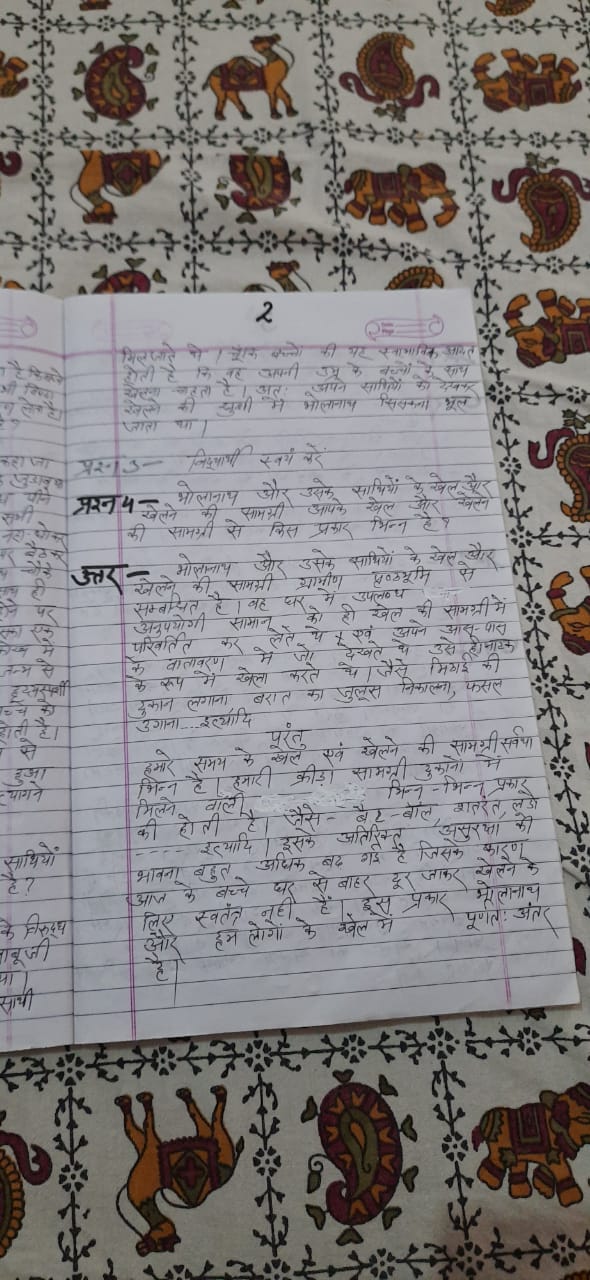 2
मिल जाते थे। चूँकि बच्चों की यह स्वाभाविक आदत
होती है कि वह अपनी उम्र के बच्चों के साथ
खेलना करता है। अतः अपने साथियों को देखकर
खेलने की खुशी में भोलानाथ सिसकना भूल
जाता था।
प्रश्न 3 - विद्यार्थी स्वयं करें
प्रश्न 4 - भोलानाथ और उसके साथियों के खेल और
खेलने की सामग्री आपके खेल और खेलने
की सामग्री से किस प्रकार भिन्न है?
उत्तर - भोलानाथ और उसके साथियों के खेल और
खेलने की सामग्री ग्रामीण पृष्ठभूमि से
सम्बंधित है। वह घर में उपलब्ध
अनुपयोगी सामान को ही खेल की सामग्री में
परिवर्तित कर लेते थे एवं अपने आस-पास
के वातावरण में जो देखते थे उसे ही नाटक
के रूप में खेला करते थे। जैसे मिठाई की
दुकान लगाना, बरात का जुलूस निकालना, फसल
उगाना...इत्यादि
परंतु
हमारे समय के खेल एवं खेलने की सामग्री सर्वथा
भिन्न है। हमारी क्रीडा सामग्री दुकानों में
मिलने वाली भिन्न-भिन्न प्रकार
की होती है। जैसे- बैट-बॉल, शतरंज, लूडो
------ इत्यादि। इसके अतिरिक्त असुरक्षा की
भावना बहुत अधिक बढ़ गई है जिसके कारण
आज के बच्चे घर से बाहर दूर जाकर खेलने के
लिए स्वतंत्र नहीं हैं। इस प्रकार भोलानाथ
और हम लोगों के खेल में पूर्णतः अंतर
है।